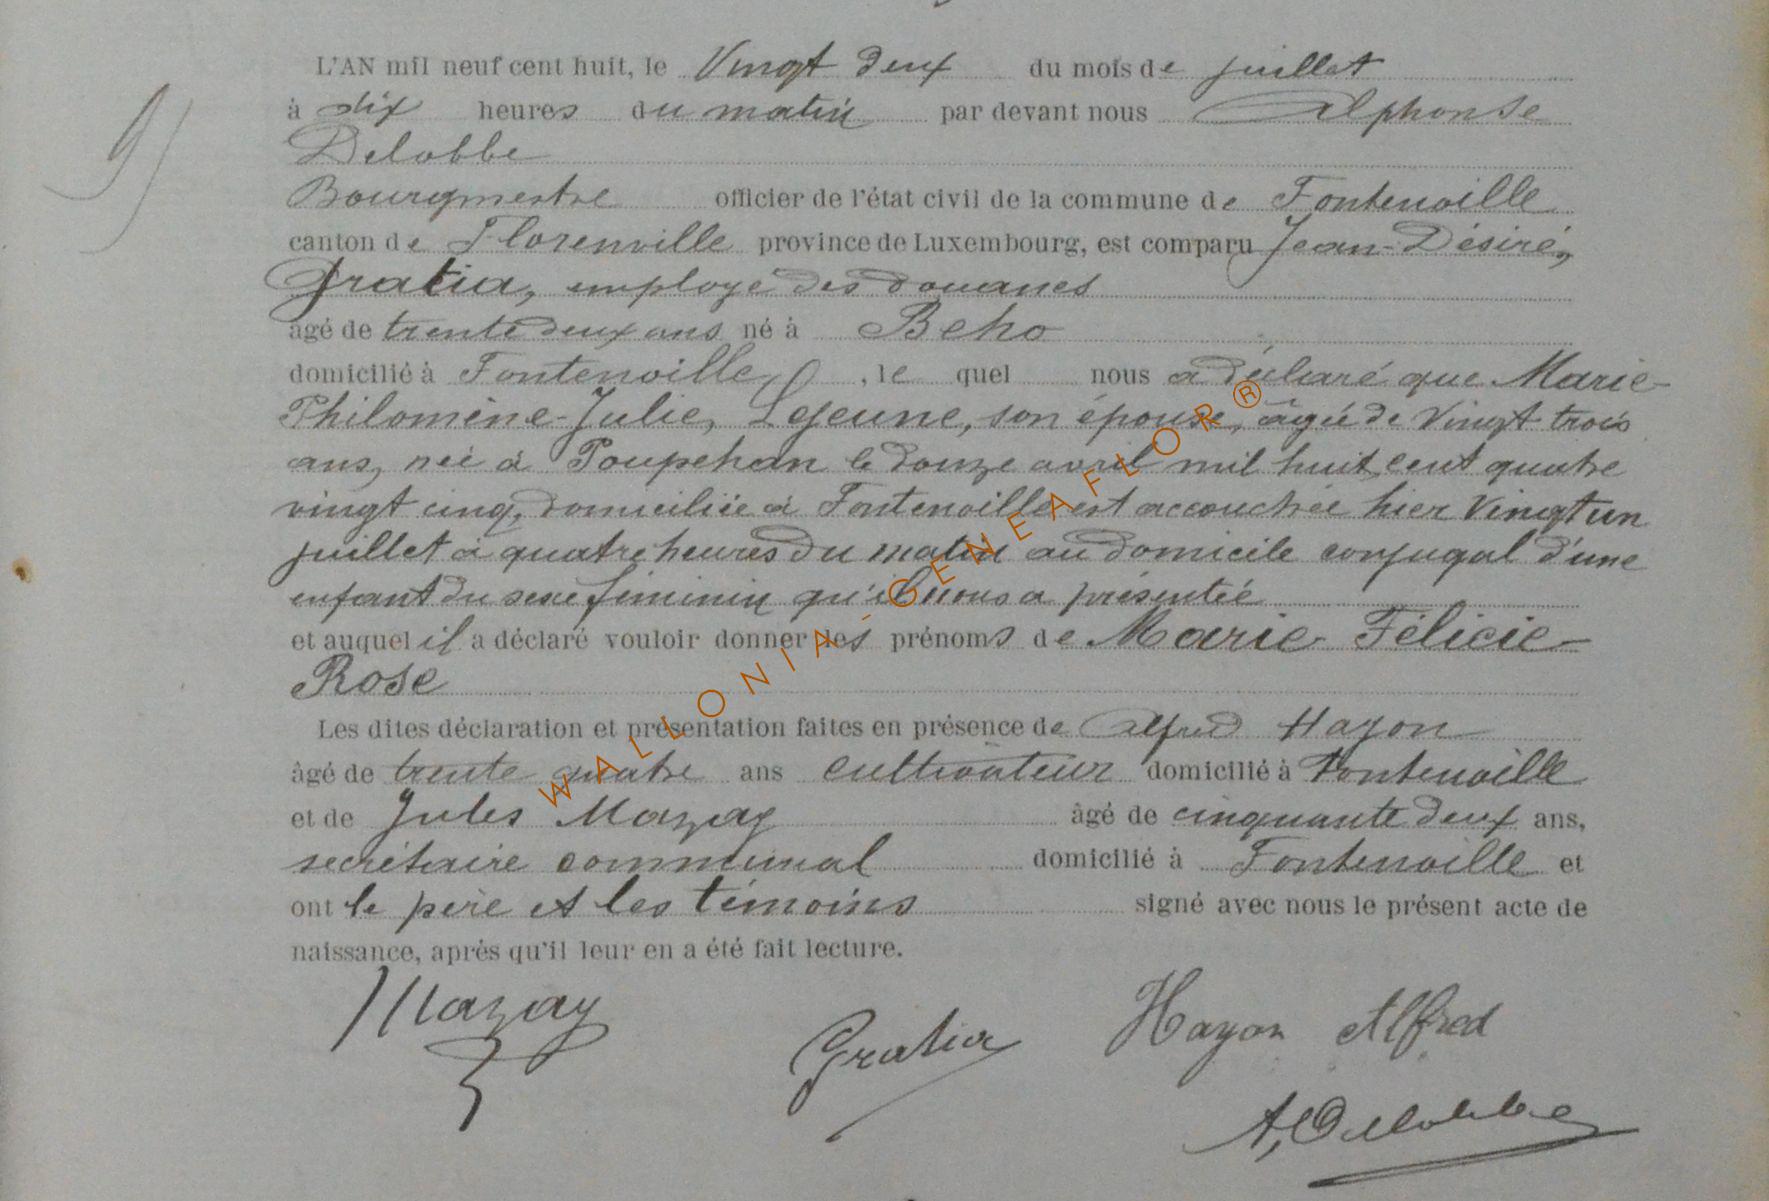 L'AN mil neuf cent huit, le Vingt deux du mois de juillet
à dix heures du matin par devant nous Alphonse
Delobbe
Bourgmestre officier de l'état civil de la commune de Fontenoille
canton de Florenville province de Luxembourg, est comparu Jean-Désiré,
Gratia, employé des douanes
âgé de trente deux ans né à Beho
domicilié à Fontenoille, le quel nous a déclaré que Marie-
Philomène-Julie, Lejeune, son épouse, âgée de Vingt trois
ans, née à Poupehan le douze avril mil huit cent quatre
vingt cinq, domiciliée à Fontenoille est accouchée hier Vingt un
juillet à quatre heures du matin au domicile conjugal d'une
enfant du sexe féminin qu'il nous a présentée
et auquel il a déclaré vouloir donner les prénoms de Marie-Félicie-
Rose
Les dites déclaration et présentation faites en présence de Alfred Hayon
âgé de trente quatre ans cultivateur domicilié à Fontenoille
et de Jules Mazay âgé de cinquante deux ans,
secrétaire communal domicilié à Fontenoille et
ont le père et les témoins signé avec nous le présent acte de
naissance, après qu'il leur en a été fait lecture.
Mazay
Gratia
Hayon Alfred
A, Delobbe
WALLONIA-GENEAFLOR®